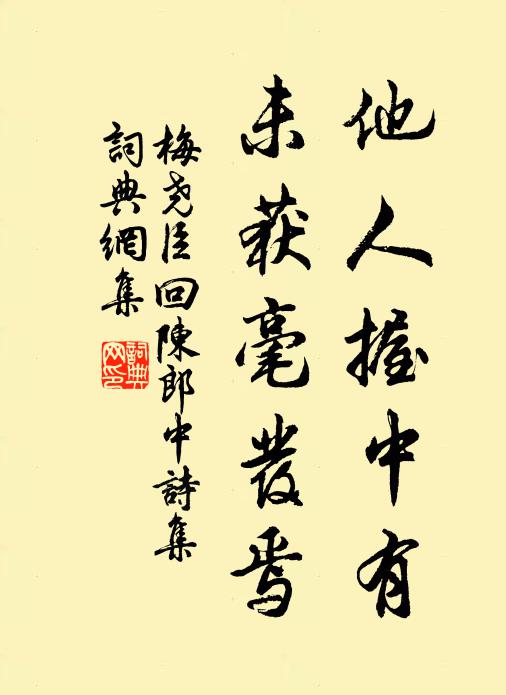 他人握中有
未获毫發焉
梅尧臣回陳郎中詩集
詞典網集
詞典网印